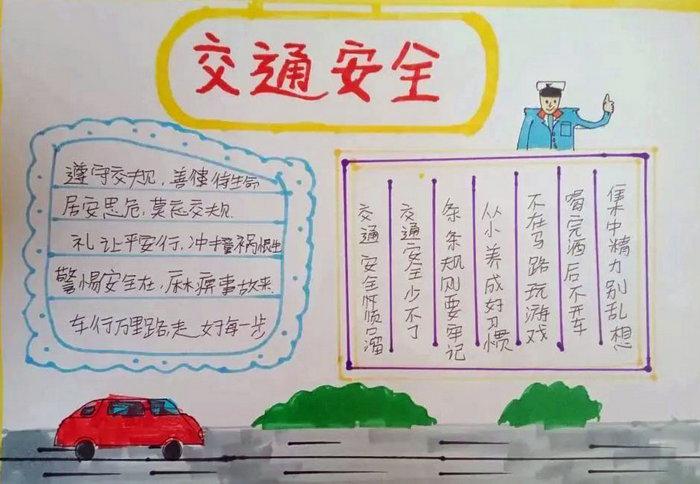 交通安全
遵守交规，善待生命
居安思危，莫忘交规
礼让平安行，冲撞祸生
警惕安全在，麻痹事故来
车行万里路走好每一步
交通安全口溜
交通安全少不了
条条规则要牢记
从小养成好习惯
不在马路玩游戏
喝完酒后不开车
集中精力别乱想